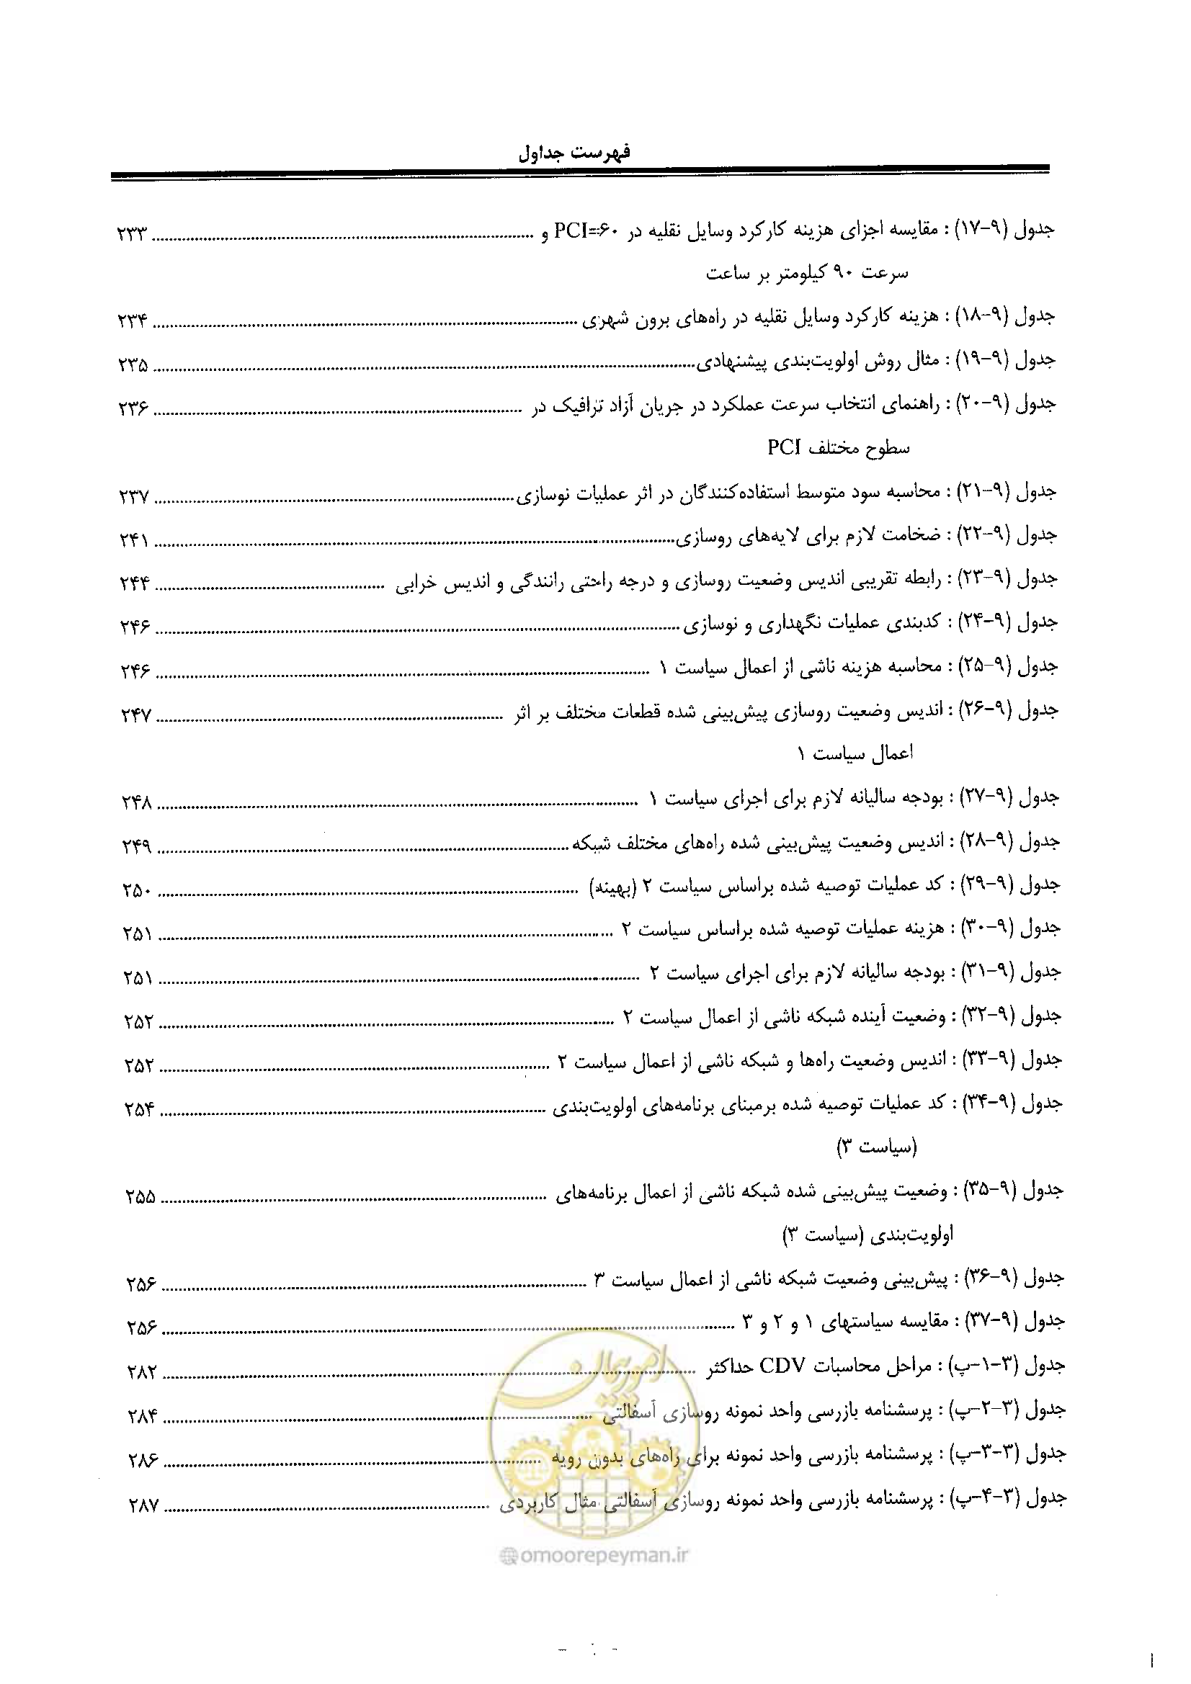 فهرست جداول
جدول (۹-۱۷) : مقایسه اجزای هزینه کارکرد وسایل نقلیه در PCI=۶۰ و ........ ۲۳۳
سرعت ۹۰ کیلومتر بر ساعت
جدول (۹-۱۸) : هزینه کارکرد وسایل نقلیه در راه‌های برون شهری ........ ۲۳۴
جدول (۹-۱۹) : مثال روش اولویت‌بندی پیشنهادی ........ ۲۳۵
جدول (۹-۲۰) : راهنمای انتخاب سرعت عملکرد در جریان آزاد ترافیک در ........ ۲۳۶
سطوح مختلف PCI
جدول (۹-۲۱) : محاسبه سود متوسط استفاده‌کنندگان در اثر عملیات نوسازی ........ ۲۳۷
جدول (۹-۲۲) : ضخامت لازم برای لایه‌های روسازی ........ ۲۴۱
جدول (۹-۲۳) : رابطه تقریبی اندیس وضعیت روسازی و درجه راحتی رانندگی و اندیس خرابی ........ ۲۴۴
جدول (۹-۲۴) : کدبندی عملیات نگهداری و نوسازی ........ ۲۴۶
جدول (۹-۲۵) : محاسبه هزینه ناشی از اعمال سیاست ۱ ........ ۲۴۶
جدول (۹-۲۶) : اندیس وضعیت روسازی پیش‌بینی شده قطعات مختلف بر اثر ........ ۲۴۷
اعمال سیاست ۱
جدول (۹-۲۷) : بودجه سالیانه لازم برای اجرای سیاست ۱ ........ ۲۴۸
جدول (۹-۲۸) : اندیس وضعیت پیش‌بینی شده راه‌های مختلف شبکه ........ ۲۴۹
جدول (۹-۲۹) : کد عملیات توصیه شده براساس سیاست ۲ (بهینه) ........ ۲۵۰
جدول (۹-۳۰) : هزینه عملیات توصیه شده براساس سیاست ۲ ........ ۲۵۱
جدول (۹-۳۱) : بودجه سالیانه لازم برای اجرای سیاست ۲ ........ ۲۵۱
جدول (۹-۳۲) : وضعیت آینده شبکه ناشی از اعمال سیاست ۲ ........ ۲۵۲
جدول (۹-۳۳) : اندیس وضعیت راه‌ها و شبکه ناشی از اعمال سیاست ۲ ........ ۲۵۲
جدول (۹-۳۴) : کد عملیات توصیه شده برمبنای برنامه‌های اولویت‌بندی ........ ۲۵۴
(سیاست ۳)
جدول (۹-۳۵) : وضعیت پیش‌بینی شده شبکه ناشی از اعمال برنامه‌های ........ ۲۵۵
اولویت‌بندی (سیاست ۳)
جدول (۹-۳۶) : پیش‌بینی وضعیت شبکه ناشی از اعمال سیاست ۳ ........ ۲۵۶
جدول (۹-۳۷) : مقایسه سیاستهای ۱ و ۲ و ۳ ........ ۲۵۶
جدول (۳-۱-پ) : مراحل محاسبات CDV حداکثر ........ ۲۸۲
جدول (۳-۲-پ) : پرسشنامه بازرسی واحد نمونه روسازی آسفالتی ........ ۲۸۴
جدول (۳-۳-پ) : پرسشنامه بازرسی واحد نمونه برای راه‌های بدون رویه ........ ۲۸۶
جدول (۳-۴-پ) : پرسشنامه بازرسی واحد نمونه روسازی آسفالتی مثال کاربردی ........ ۲۸۷
امور پیمان
@omoorepeyman.ir